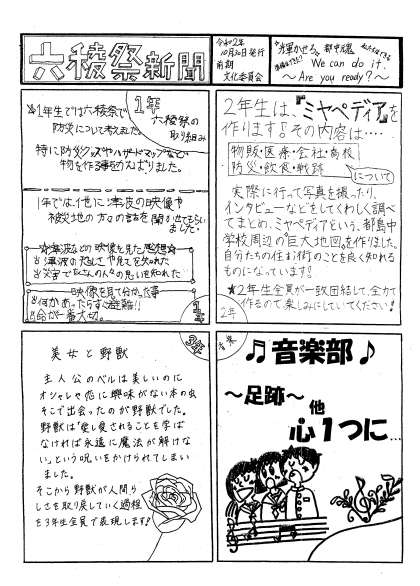 六稜祭新聞
令和2年
10月30日発行
前期
文化委員会
輝かせろ 都中魂
We can do it.
〜Are you ready?〜
1年
六稜祭の
取り組み
1年生では六稜祭で
防災について考えました。
特に防災グッズやハザードマップなど
物を作る事をがんばりました。
1年では他に津波の映像や
被災地の方の話を聞か出てもらい
ました。
☆津波などの映像を見た感想☆
映像を見て分かった事
命が一番大切。
1年
2年生は、『ミヤペディア』を
作ります!その内容は‥‥
物販・医療・会社・高校
防災・飲食・戦跡
について
実際に行って写真を撮ったり、
インタビューなどをしてくわしく調べ
てまとめ、ミヤペディアという、都島中
学校周辺の巨大地図を作りました。
自分たちの住む街のことを良く知れる
ものになっています!
★2年生全員が一致団結して、全力で
作るので楽しみにしていてください!
2年
3年
美女と野獣
主人公のベルは美しいのに
オシャレや恋に興味がない本の虫
そこで出会ったのが野獣でした。
野獣は「愛し愛されることを学ば
なければ永遠に魔法が解けな
い」という呪いをかけられてしまい
ました。
そこから野獣が人間ら
しさを取り戻していく過程
を3年生全員で表現します!
音楽
♫音楽部♪
〜足跡〜 他
心1つに…